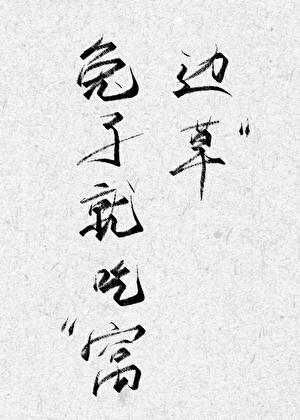 兔子就吃"窝
边草"